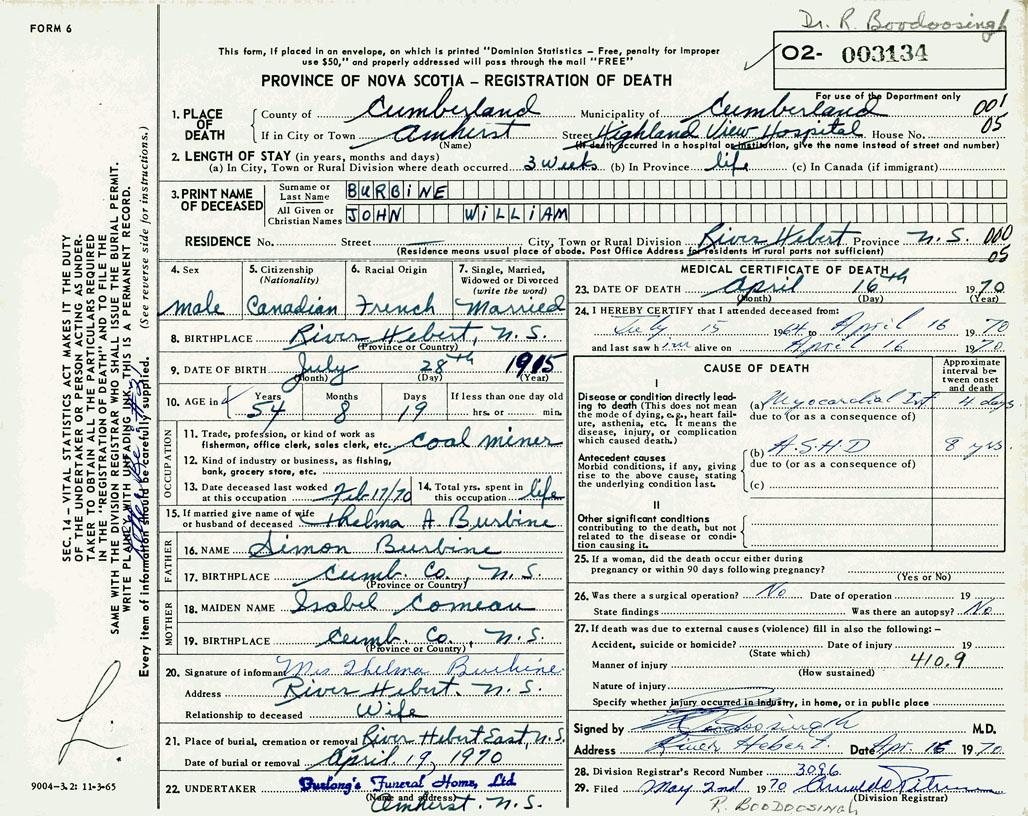 Dr. R. Boodoosingh
FORM 6
O2- 003134
This form, if placed in an envelope, on which is printed "Dominion Statistics – Free, penalty for improper
use $50," and properly addressed will pass through the mail "FREE"
PROVINCE OF NOVA SCOTIA – REGISTRATION OF DEATH
For use of the Department only
1. PLACE OF DEATH County of Cumberland Municipality of Cumberland 001
If in City or Town Amherst Street Highland View Hospital House No. 05
(Name) (If death occurred in a hospital or institution, give the name instead of street and number)
2. LENGTH OF STAY (in years, months and days)
(a) In City, Town or Rural Division where death occurred 3 weeks (b) In Province life (c) In Canada (if immigrant)
3. PRINT NAME OF DECEASED Surname or Last Name BURBINE
All Given or Christian Names JOHN WILLIAM
RESIDENCE No. Street City, Town or Rural Division River Hebert Province N.S. 000
05
(Residence means usual place of abode. Post Office Address for residents in rural parts not sufficient)
4. Sex 5. Citizenship (Nationality) 6. Racial Origin 7. Single, Married, Widowed or Divorced (write the word)
Male Canadian French Married
8. BIRTHPLACE River Hebert, N.S.
(Province or Country)
9. DATE OF BIRTH July 28th 1915
(Month) (Day) (Year)
10. AGE in Years Months Days If less than one day old
54 8 19 hrs. or min.
OCCUPATION
11. Trade, profession, or kind of work as
fisherman, office clerk, sales clerk, etc. Coal miner
12. Kind of industry or business, as fishing,
bank, grocery store, etc.
13. Date deceased last worked at this occupation Feb 17/70 14. Total yrs. spent in this occupation life
15. If married give name of wife
or husband of deceased Thelma A. Burbine
FATHER
16. NAME Simon Burbine
17. BIRTHPLACE Cumb. Co., N.S.
(Province or Country)
MOTHER
18. MAIDEN NAME Isabel Comeau
19. BIRTHPLACE Cumb. Co., N.S.
(Province or Country)
20. Signature of informant Mrs. Thelma Burbine
Address River Hebert, N.S.
Relationship to deceased Wife
21. Place of burial, cremation or removal River Hebert East, N.S.
Date of burial or removal April 19, 1970
22. UNDERTAKER Furlong's Funeral Home, Ltd
(Name and address)
Amherst, N.S.
MEDICAL CERTIFICATE OF DEATH
23. DATE OF DEATH April 16th 1970
(Month) (Day) (Year)
24. I HEREBY CERTIFY that I attended deceased from:
July 15 1964 to April 16 1970
and last saw him alive on April 16 1970
CAUSE OF DEATH
Approximate interval between onset and death
I
Disease or condition directly leading to death (This does not mean the mode of dying, e.g., heart failure, asthenia, etc. It means the disease, injury, or complication which caused death.)
(a) Myocardial Inf 4 days
due to (or as a consequence of)
Antecedent causes
Morbid conditions, if any, giving rise to the above cause, stating the underlying condition last.
(b) A.S.H.D 8 yrs.
due to (or as a consequence of)
(c)
II
Other significant conditions
contributing to the death, but not related to the disease or condition causing it.
25. If a woman, did the death occur either during
pregnancy or within 90 days following pregnancy?
(Yes or No)
26. Was there a surgical operation? No Date of operation 19
State findings Was there an autopsy? No
27. If death was due to external causes (violence) fill in also the following: –
Accident, suicide or homicide? Date of injury 19
(State which)
Manner of injury 410.9
(How sustained)
Nature of injury
Specify whether injury occurred in industry, in home, or in public place
Signed by R. Boodoosingh M.D.
Address River Hebert Date Apr. 16 1970
28. Division Registrar's Record Number 3096
29. Filed May 2nd 1970
(Division Registrar)
R. BOODOOSINGH
SEC. 14 – VITAL STATISTICS ACT MAKES IT THE DUTY
OF THE UNDERTAKER OR PERSON ACTING AS UNDER-
TAKER TO OBTAIN ALL THE PARTICULARS REQUIRED
IN THE "REGISTRATION OF DEATH" AND TO FILE THE
SAME WITH THE DIVISION REGISTRAR WHO SHALL ISSUE THE BURIAL PERMIT.
WRITE PLAINLY WITH UNFADING INK. THIS IS A PERMANENT RECORD.
Every item of information should be carefully supplied. (See reverse side for instructions.)
9004–3.2: 11-3-65